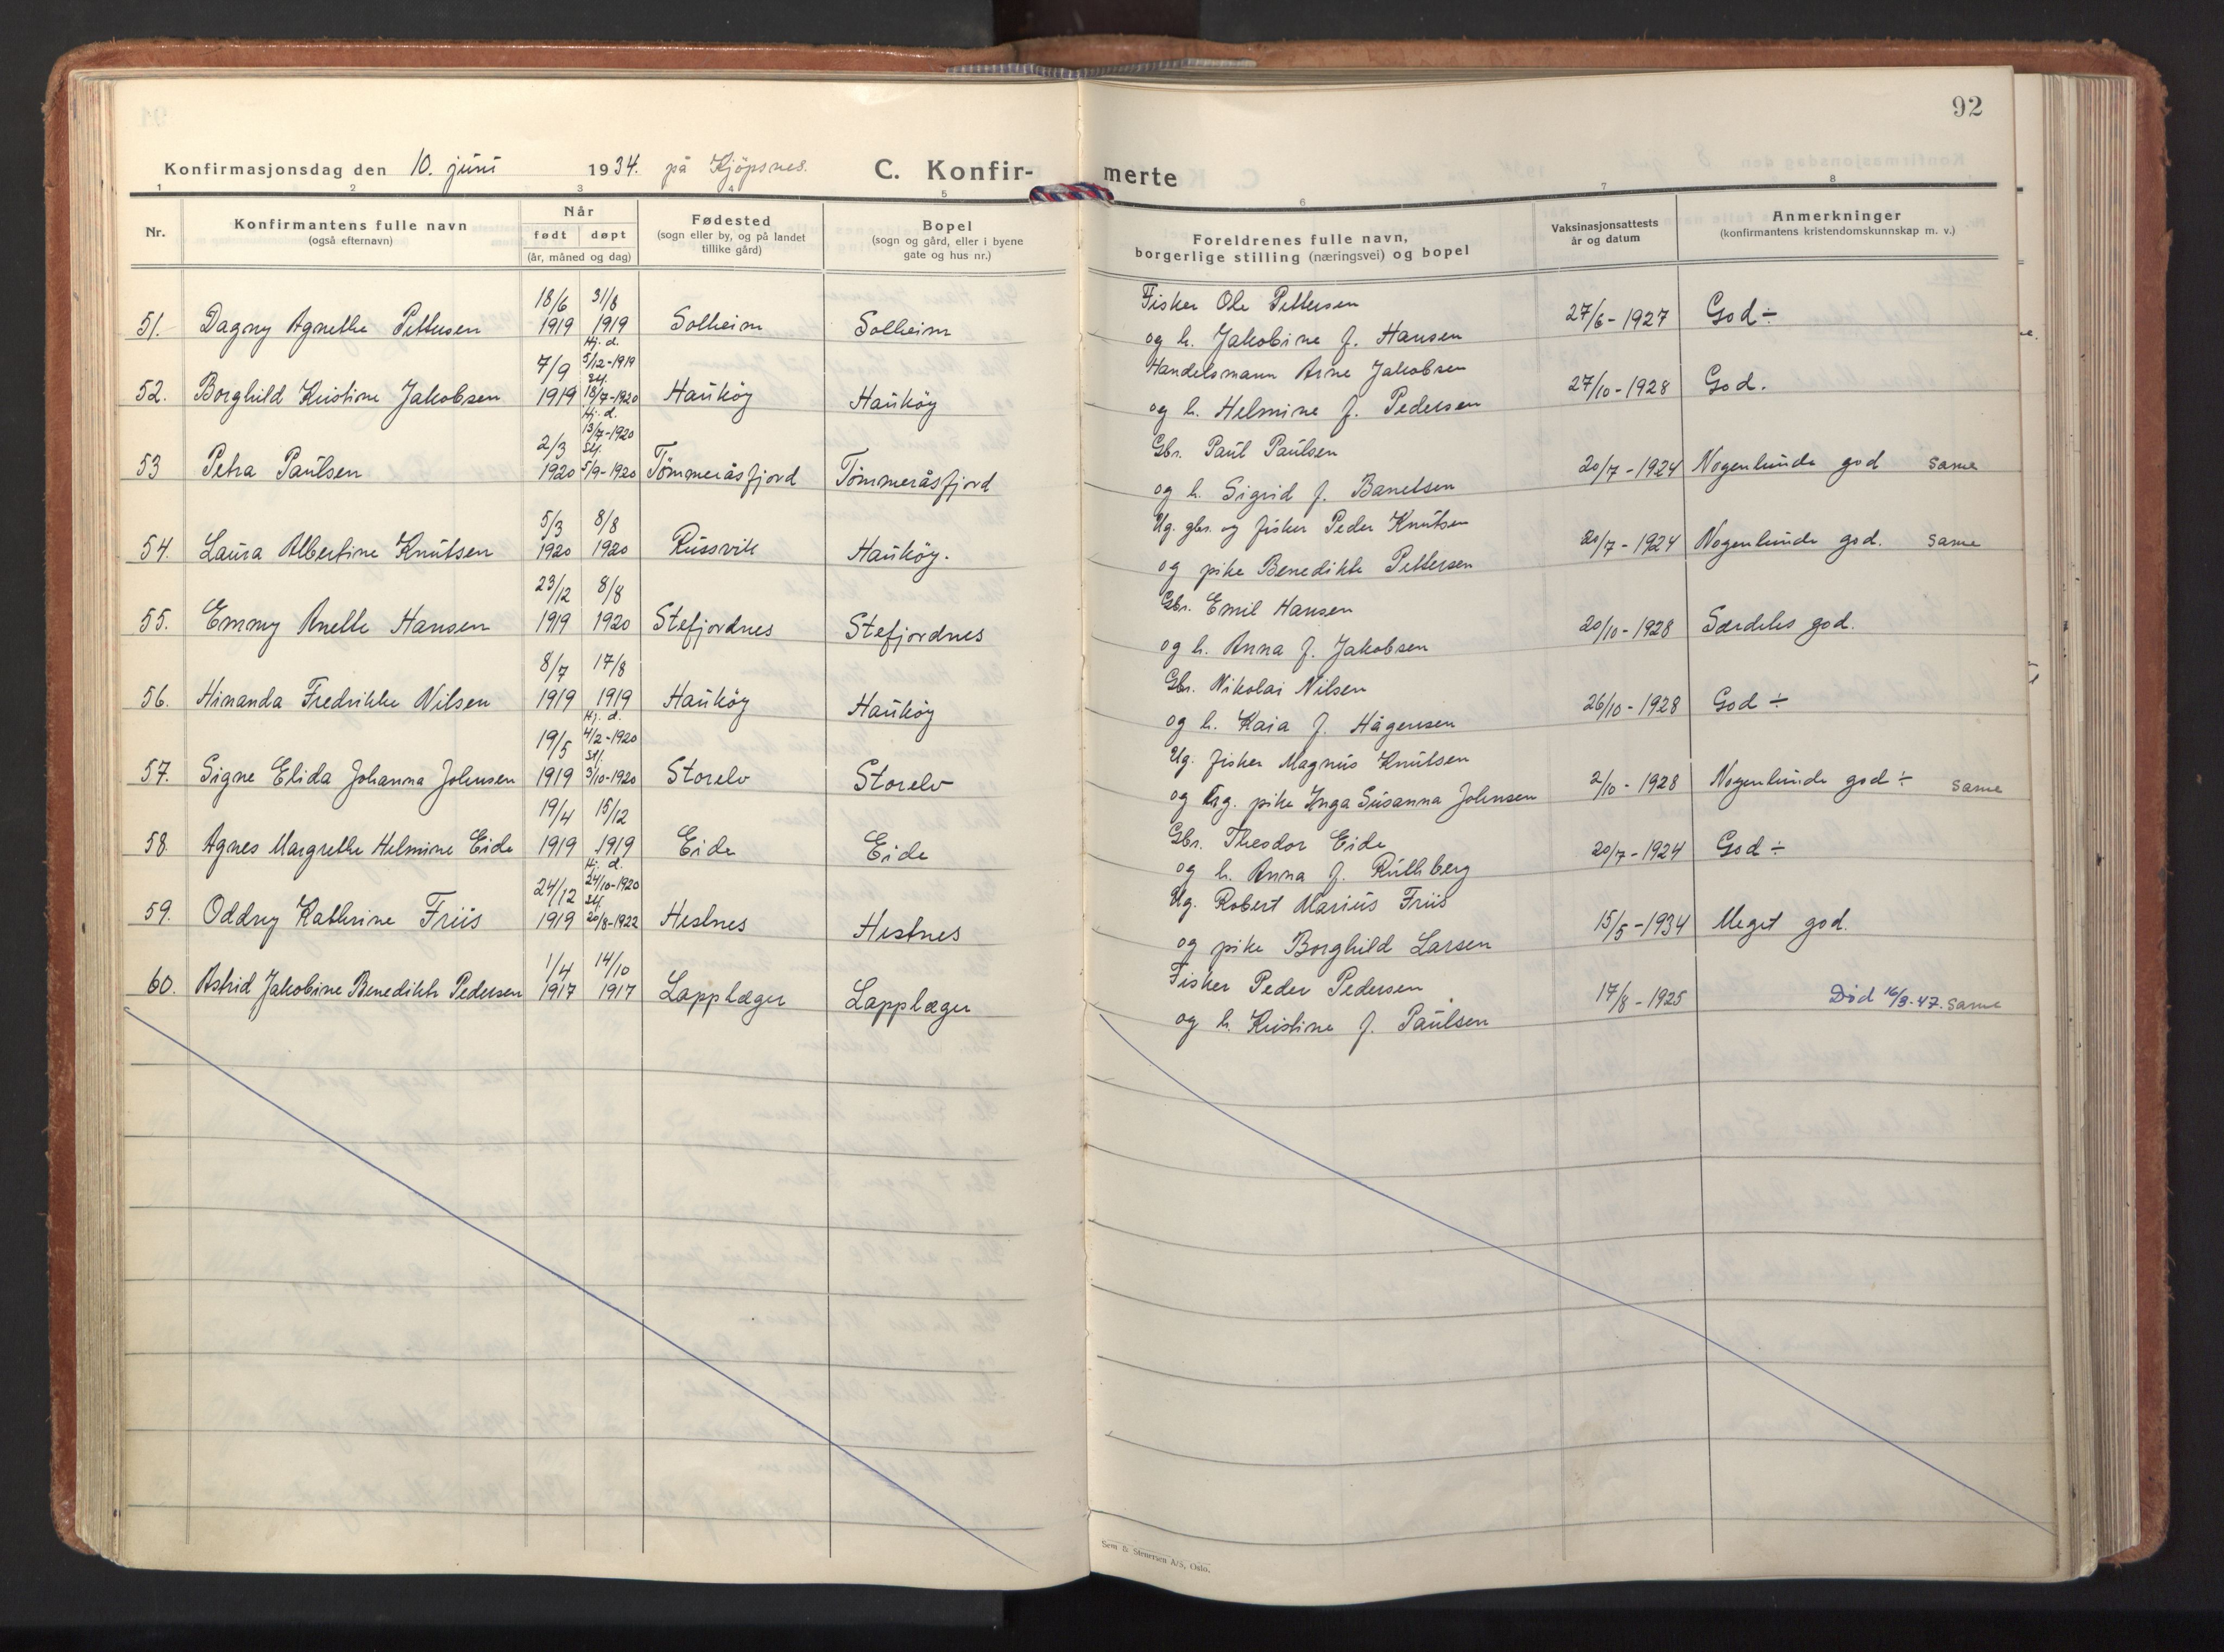 92
Konfirmasjonsdag den 10. juni 1934. på Kjöpsnes. C. Konfir- merte
1 2 3 4 5 6 7 8
Nr.
Konfirmantens fulle navn
(også efternavn)
Når
født døpt
(år, måned og dag)
Fødested
(sogn eller by, og på landet
tillike gård)
Bopel
(sogn og gård, eller i byene
gate og hus nr.)
Foreldrenes fulle navn,
borgerlige stilling (næringsvei) og bopel
Vaksinasjonsattests
år og datum
Anmerkninger
(konfirmantens kristendomskunnskap m. v.)
18/6 31/8 Fisker Ole Pettersen
51. Dagny Agnethe Pettersen 1919 1919 Solheim Solheim og h. Jakobine f. Hansen 27/6-1927 God ÷
Hj. d.
7/9 5/12-1919 Handelsmann Arne Jakobsen
Stf.
52. Borghild Kristine Jakobsen 1919 18/7-1920 Hauköy Hauköy og h. Helmine f. Pedersen 27/10-1928 God.
Hj. d.
2/3 13/7-1920 Gbr. Paul Paulsen
Stf.
53 Petra Paulsen 1920 5/9-1920 Tömmeråsfjord Tömmeråsfjord og h. Sigrid f. Banetsen 20/7-1924 Nogenlunde god same
5/3 8/8 Ug. gbr. og fisker Peder Knutsen
54. Laura Albertine Knutsen 1920 1920 Russvik Hauköy. og pike Benedikte Pettersen 20/7-1924 Nogenlunde god. same
23/12 8/8 Gbr. Emil Hansen
55. Emmy Anette Hansen 1919 1920 Stefjordnes Stefjordnes og h. Anna f. Jakobsen 20/10-1928 Særdeles god.
8/7 17/8 Gbr. Nikolai Nilsen
56. Hinanda Fredrikke Nilsen 1919 1919 Hauköy Hauköy og h. Kaia f. Hågensen 26/10-1928 God ÷
Hj. d.
19/5 4/2-1920 Ug. fisker Magnus Knutsen
Stf.
57. Signe Elida Johanna Johnsen 1919 3/10-1920 Storelv Storelv og ug. pike Inga Susanna Johnsen 2/10-1928 Nogenlunde god ÷ same
19/4 15/12 Gbr. Theodor Eide
58. Agnes Margrethe Helmine Eide 1919 1919 Eide Eide og h. Anna f. Ruthberg 20/7-1924 God ÷
Hj. d.
24/12 24/10-1920 Ug. Robert Marius Friis
Stf.
59. Oddny Kathrine Friis 1919 20/8-1922 Hestnes Hestnes og pike Borghild Larsen 15/5-1934 Meget god.
1/4 14/10 Fisker Peder Pedersen
60. Astrid Jakobine Benedikte Pedersen 1917 1917 Lapplæger Lapplæger og h. Kristine f. Paulsen 17/8-1925 Död 16/3-47. same
Sem & Stenersen A/S, Oslo.